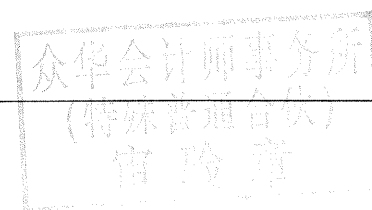 众华会计师事务所
(特殊普通合伙)
审 玲 章